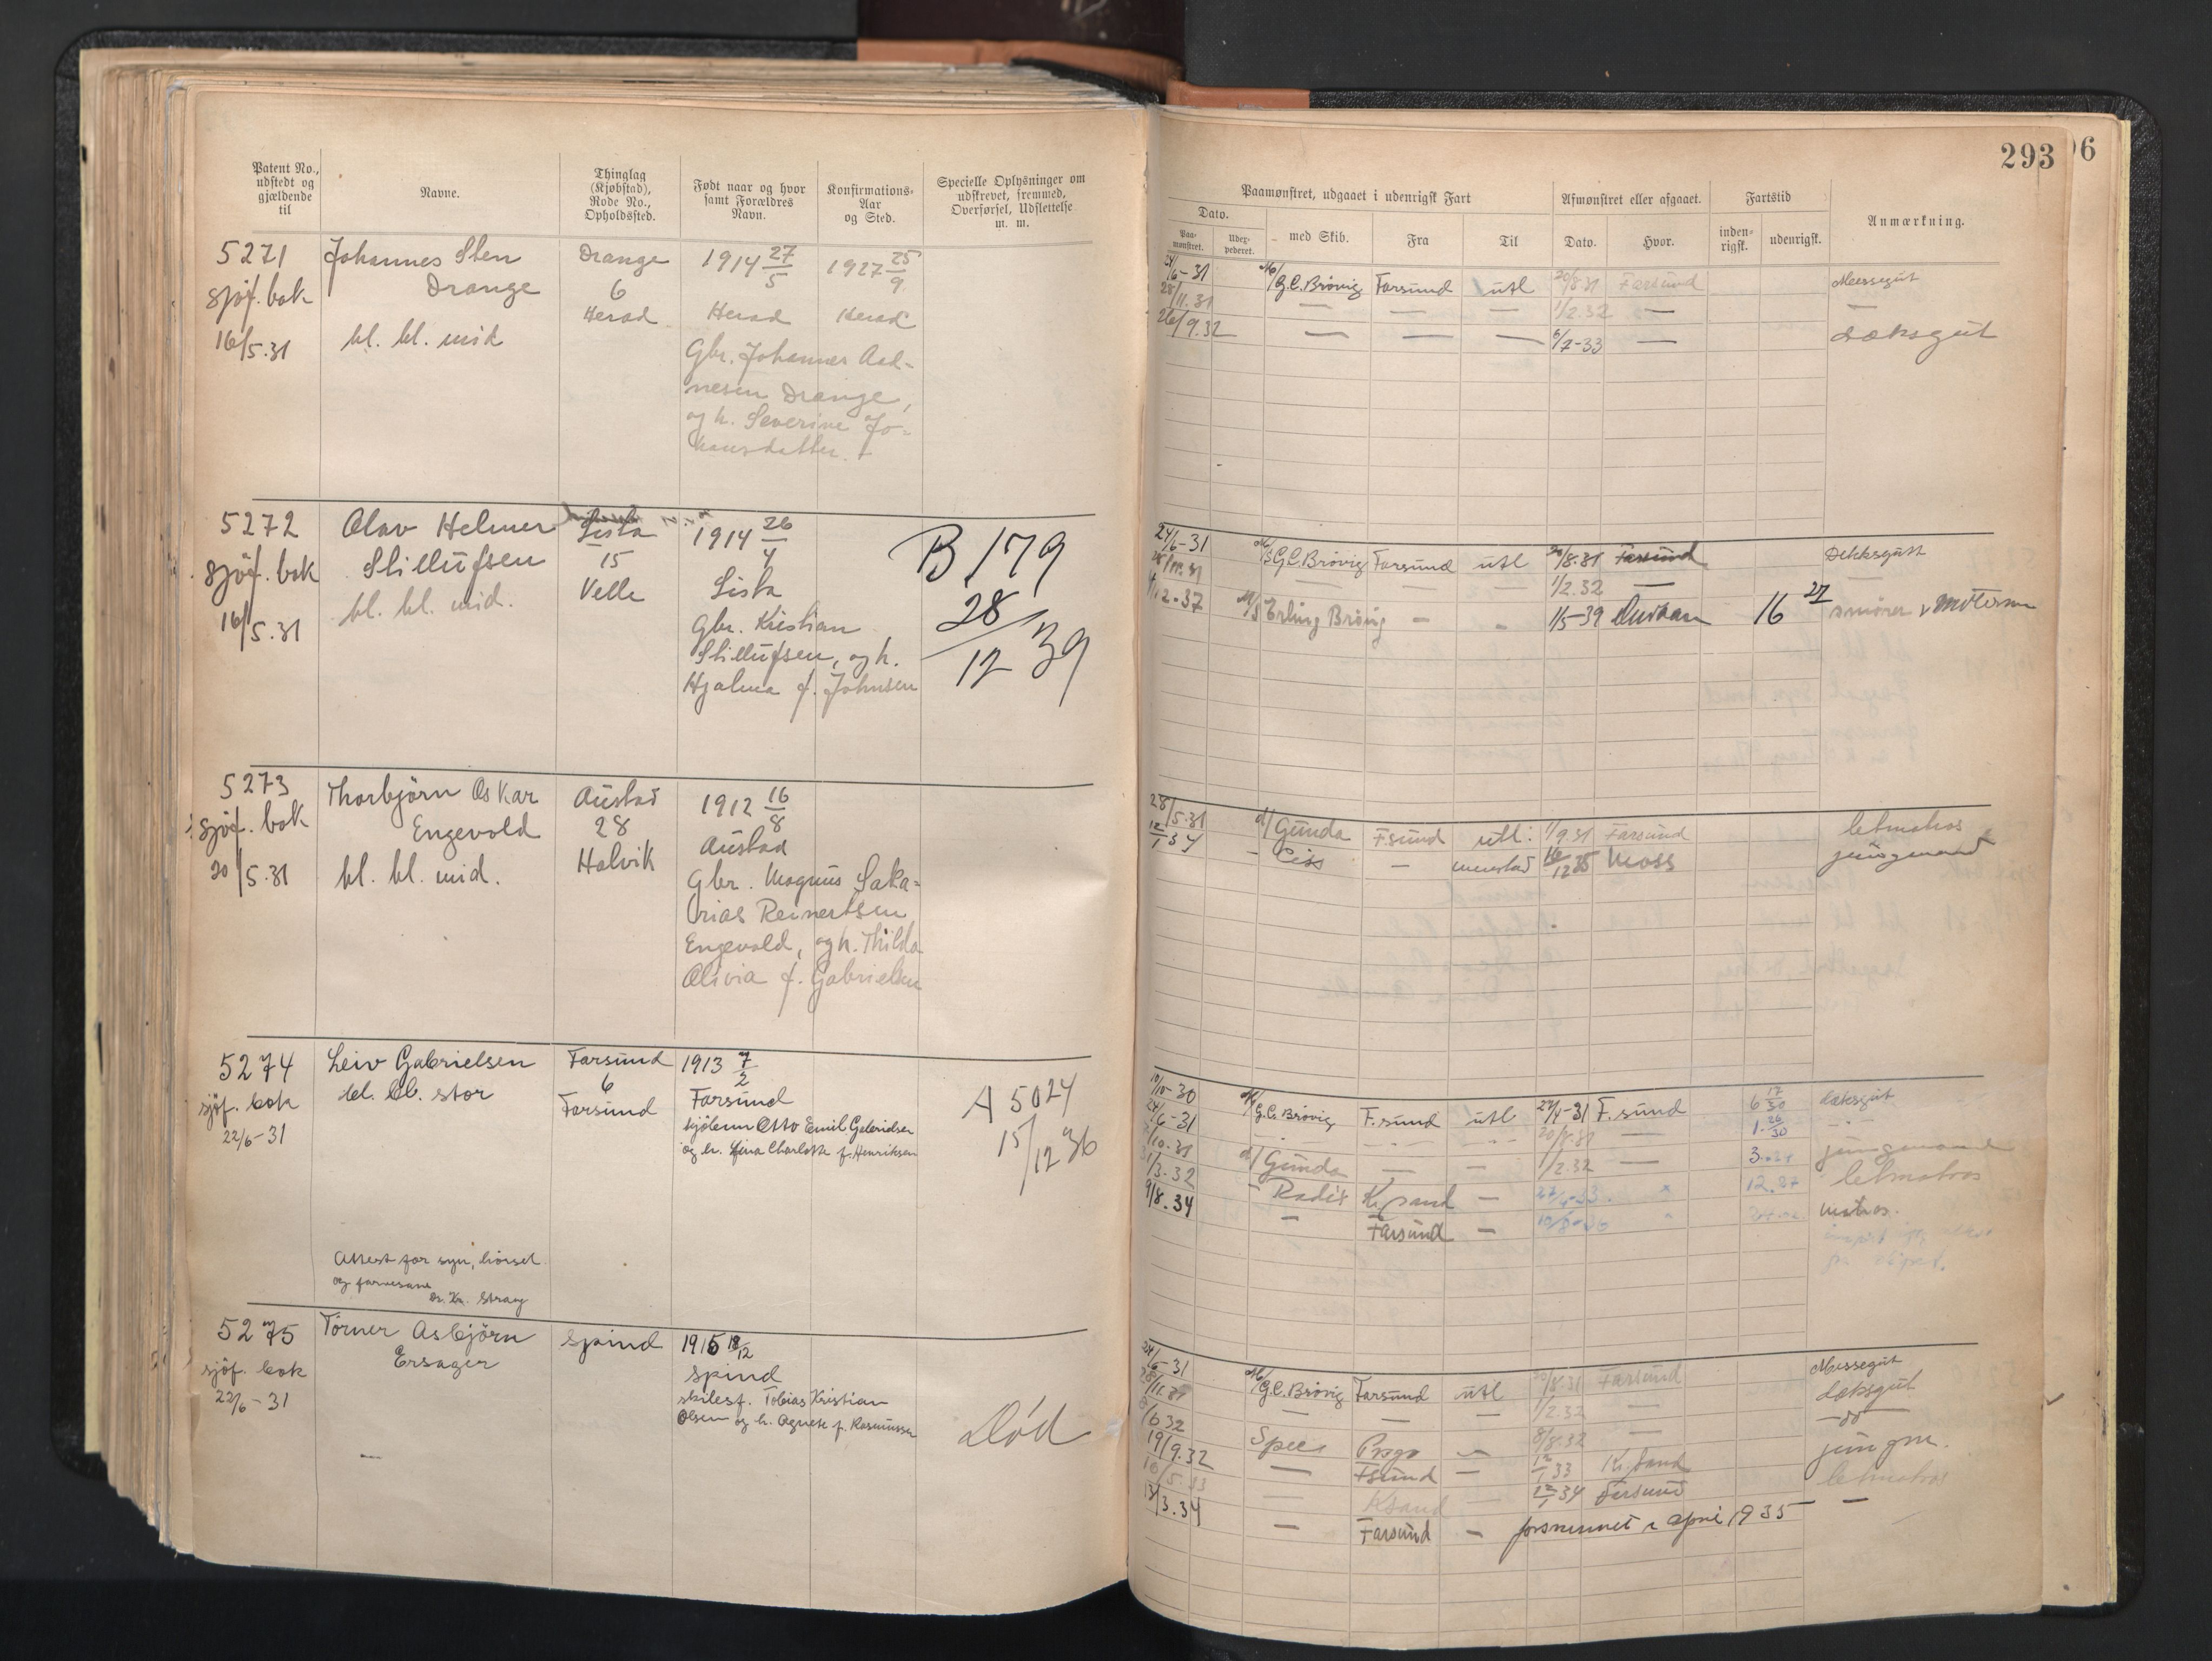 293
96
Patent No., udstedt og gjældende til
Navne.
Thinglag (Kjøbstad), Rode No., Opholdssted.
Født naar og hvor samt Forældres Navn.
Konfirmations-Aar og Sted.
Specielle Oplysninger om udskrevet, fremmed, Overførsel, Udslettelse m. m.
Paamønstret, udgaaet i udenrigsk Fart
Afmønstret eller afgaaet.
Fartstid
Anmærkning.
Dato.
Paa-mønstret.
Udex-pederet.
med Skib.
Fra
Til
Dato.
Hvor.
inden-rigsk.
udenrigsk.
5271
sjöf. bok
16/5.31
Johannes Sten
Drange
bl. bl. mid
Drange
6
Herad
1914 27/5
Herad
Gbr. Johannes Aad-
nesen Drange,
og h. Severine Jo-
hansdatter.
1927 25/9
Herad
24/6-31 M/ G.C. Brövig Farsund utl 20/8 31 Farsund Messegut
25/11.31 — — — 1/2.32 — —
26/9.32 — — — 6/7-33 — Dæksgut
5272
sjöf. bok
16/5.31
Olav Helmer
Stillufsen
bl. bl. mid.
Lista
15
Velle
1914 26/4
Lista
Gbr. Kristian
Stillufsen, og h.
Hjalma f. Johnsen
B 179
28/12 39
24/6-31 M/S G.C. Brövig Farsund utl 20/8.31 Farsund Dekksgutt
25/11.31 — — — 1/2.32 —
2-37 M/S Erling Brövig — — 1/5-39 16 27 smører
5273
sjöf. bok
20/5.31
Thorbjörn Oskar
Engevold
bl. bl. mid.
Austad
28
Halvik
1912 16/8
Austad
Gbr. Magnus Saka-
rias Reinertsen
Engevold, og h. Thilda
Olivia f. Gabrielsen
28/5.31 d/ Gunda Fsund utl: 1/9.31 Farsund letmatros
12/1 34 - Ciss — 35 Moss jungmand
5274
sjöf. bok
22/6-31
Leiv Gabrielsen
bl. bl. stor
Attest for syn, hörsel
og farvesans
Dr. Kr. Stray
Farsund
6
Farsund
1913 7/2
Farsund
sjöbmn Otto Emil Gabrielsen
og h. Lina Charlotte f. Henriksen
A 5024
15/12 36
10/10-30 M/ G.C. Brövig F.sund utl 31 F.sund 6 17/30 dæksgut
24/6-31 20/8.31 — 1. 26/30
10.31 d/ Gunda — — 1/2.32 — 3. jungmand
3.32 - Radix Kr.sand — 12.27 letmatros
9/8.34 — Farsund — matros.
5275
sjöf. bok
22/6-31
Törner Asbjörn
Ersager
Spind
1915 18/12
Spind
skilesf. Tobias Kristian
Olsen og h. Agnete f. Rasmussen
Død
24/6-31 M/ G.C. Brövig Farsund utl 20/8.31 Farsund Messegut
25/11.31 — — — 1/2.32 — dæksgut
6 32 8/8.32 — — do —
19/9.32 — Fsund — 12/1 33 Kr.sand jungm.
10/5.33 — Ksand — 12/1 34 Farsund letmatros
13/3.34 — Farsund — forsvunnet i april 1935 —